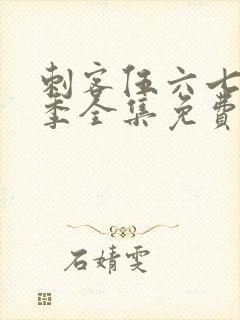 刺客伍六七
季全集免费
石婧雯